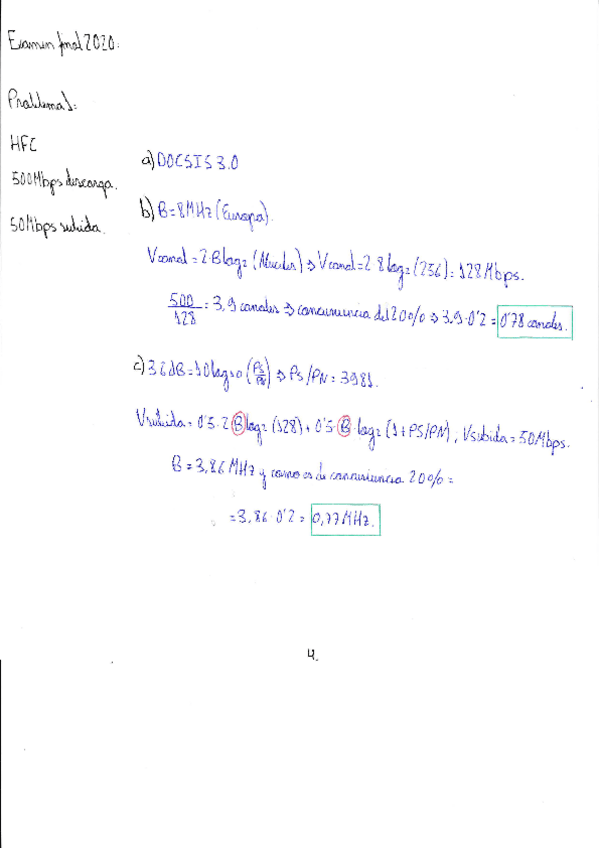 Examen final 2020:
Problema 1:
HFC
500Mbps descarga.
50Mbps subida.
a) DOCSIS 3.0
b) B=8MHz (Europa).
Vcanal=2·B log₂ (Niveles) ⇒ Vcanal=2·8 log₂ (256)=128Mbps.
500/128 = 3,9 canales ⇒ concurrencia del 20% ⇒ 3,9·0'2 = 0'78 canales.
c) 36dB=10 log10 (PS/PN) ⇒ PS/PN=3981.
Vsubida=0'5·2 B log₂ (128)+0'5·B·log₂ (1+PS/PN), Vsubida=50Mbps.
B=3,86 MHz y como es de concurrencia 20% =
=3,86·0'2= 0,77MHz.
4.